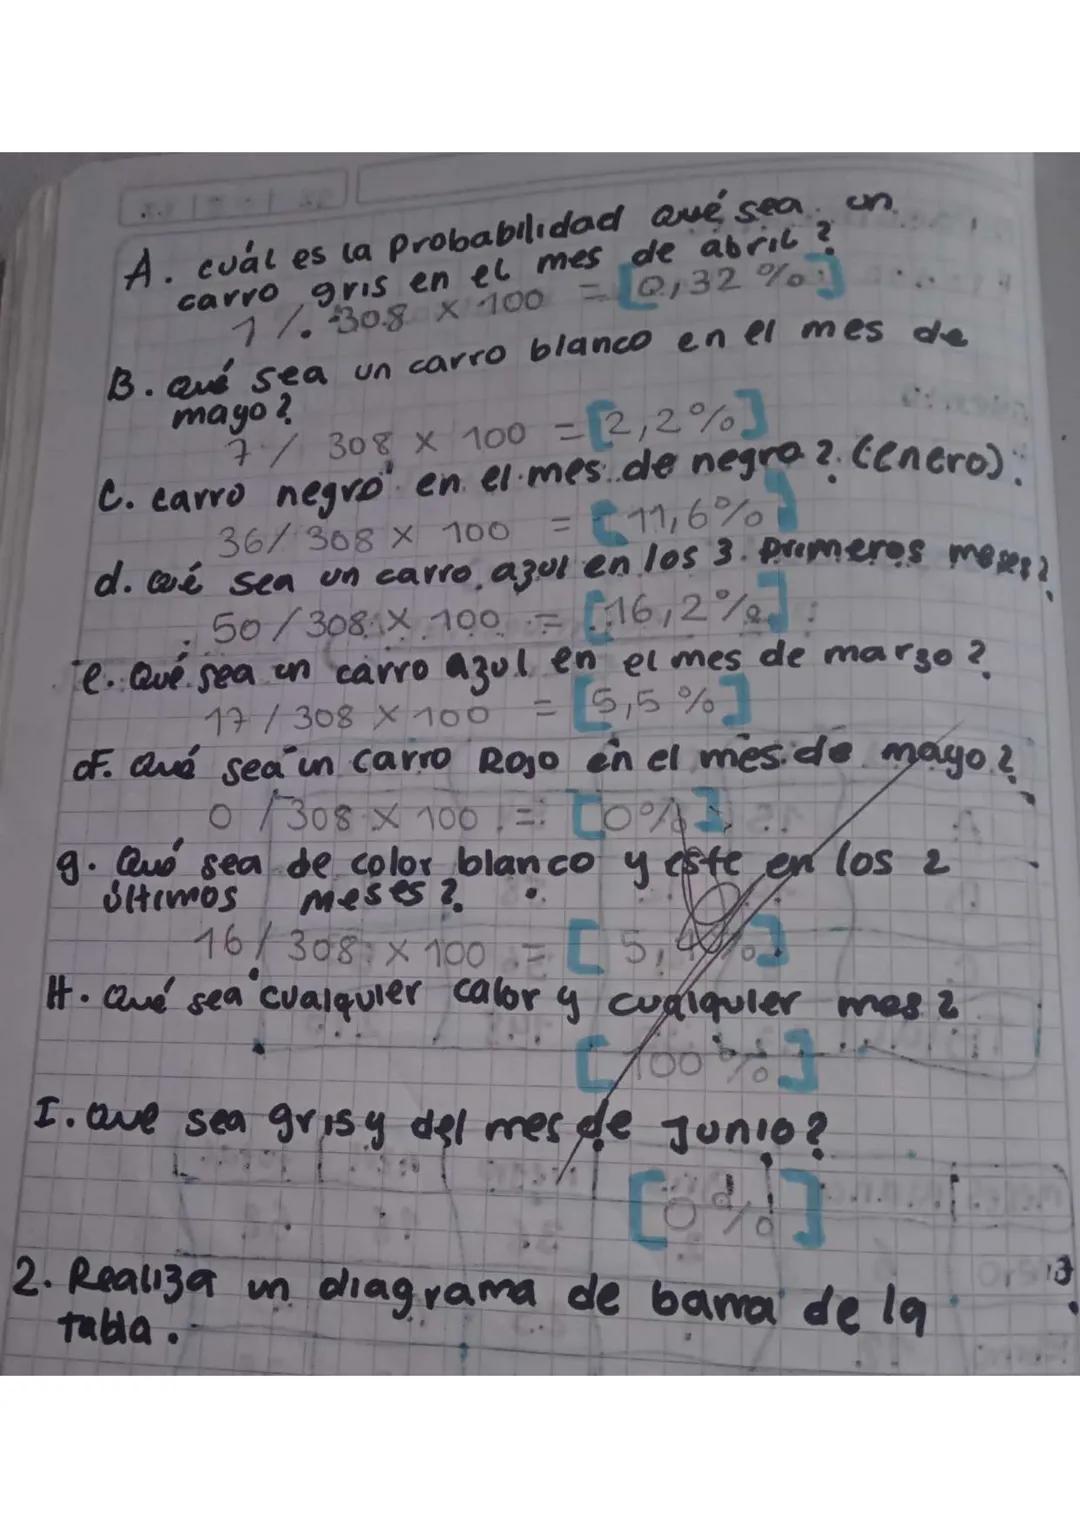 A. cuál es la Probabilidad qué sea un
carro gris en el mes de abril?
1 /. 308 x 100 = [0,32 %]
B. qué sea un carro blanco en el mes de
mayo?
7 / 308 x 100 = [2,2%]
C. carro negro en el mes de negro?. (enero).
36/ 308 x 100 = [11,6%]
d. qué sea un carro azul en los 3. Primeros meses?
50 / 308 x 100 = [16,2%]
e. Qué sea un carro azul en el mes de marzo?
17 / 308 x 100 = [5,5 %]
F. qué sea un carro Rojo en el mes de mayo?
0 / 308 x 100 = [0%]
g. Qué sea de color blanco y este en los 2
últimos meses?
16/ 308 x 100 = [5, %]
H. Qué sea cualquier calor y cualquier mes?
[100 %]
I. que sea gris y del mes de Junio?
[0 %]
2. Realiza un diagrama de barra de la
tabla.